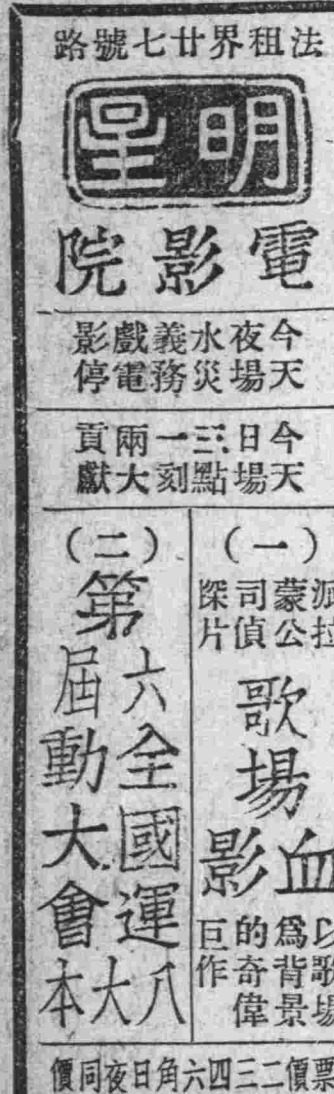 法租界廿七號路
明星
電影院
今天夜場水災義務戲電影停
今天日場三點一刻兩大貢獻
（一）
派拉蒙公司偵探片
歌場血影
以歌場爲背景的奇偉巨作
（二）
第六屆全國運動大會八大本
票價二三四六角日夜同價